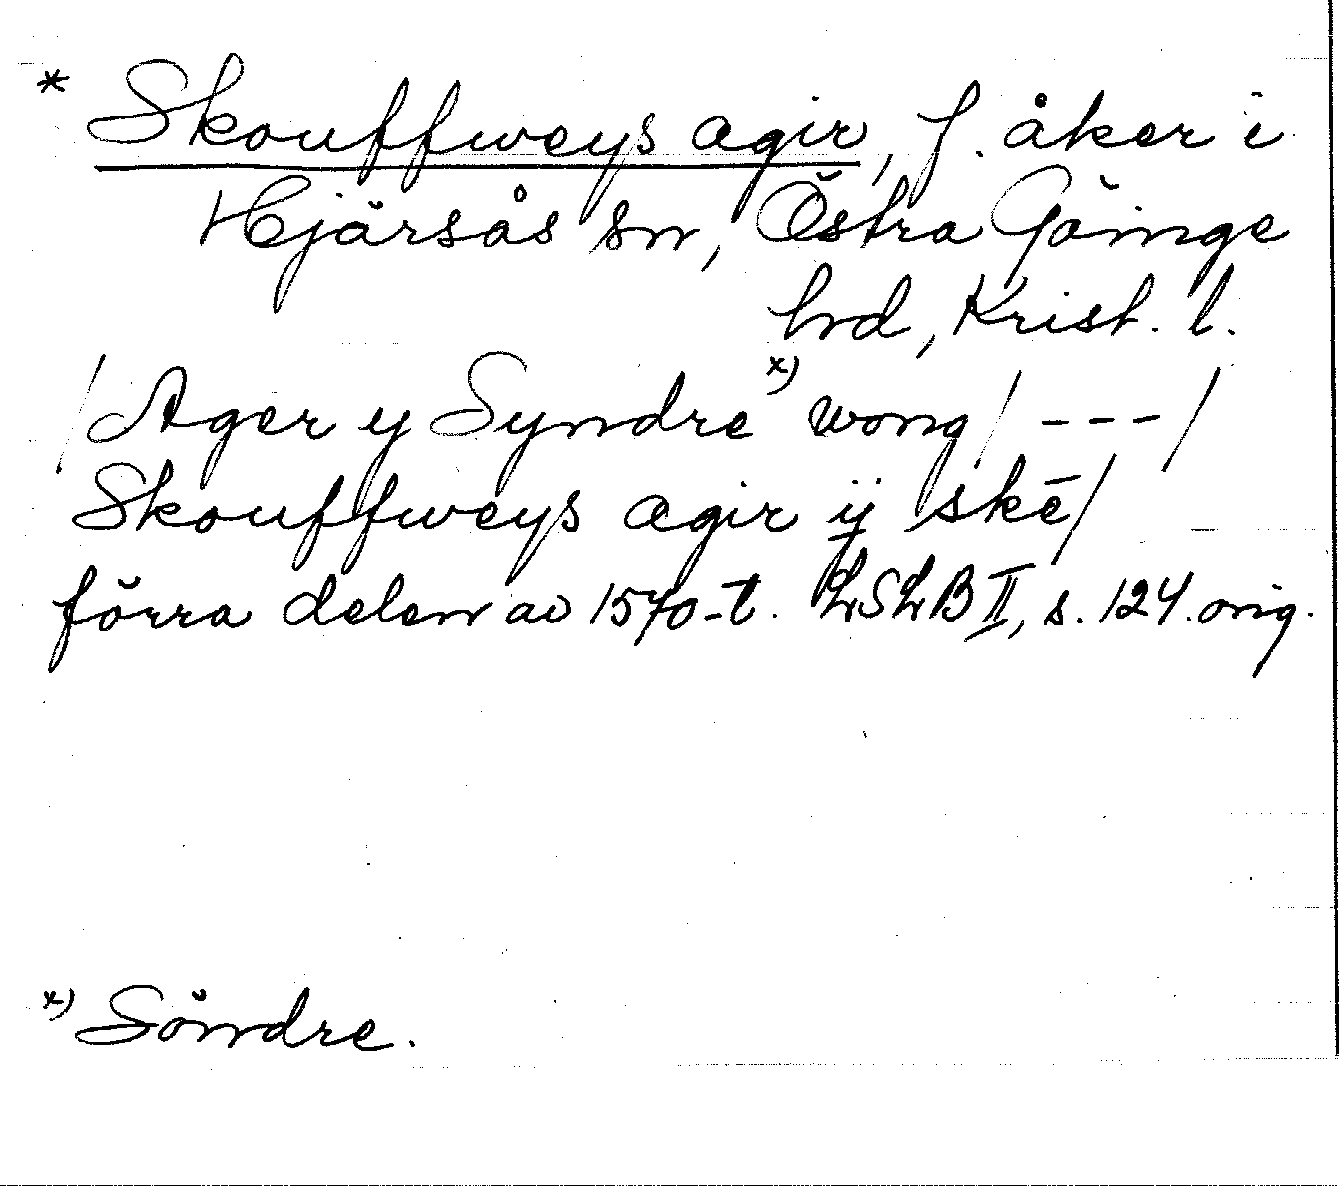 * Skouffweys agir, f. åker i
Hjärsås sn, Östra Göinge
hrd, Krist. l.
/Ager y Syndre x) wong/ --- /
Skouffweys agir ij skē/
förra delen av 1570-t. LSLB II, s. 124. orig.
x) Söndre.